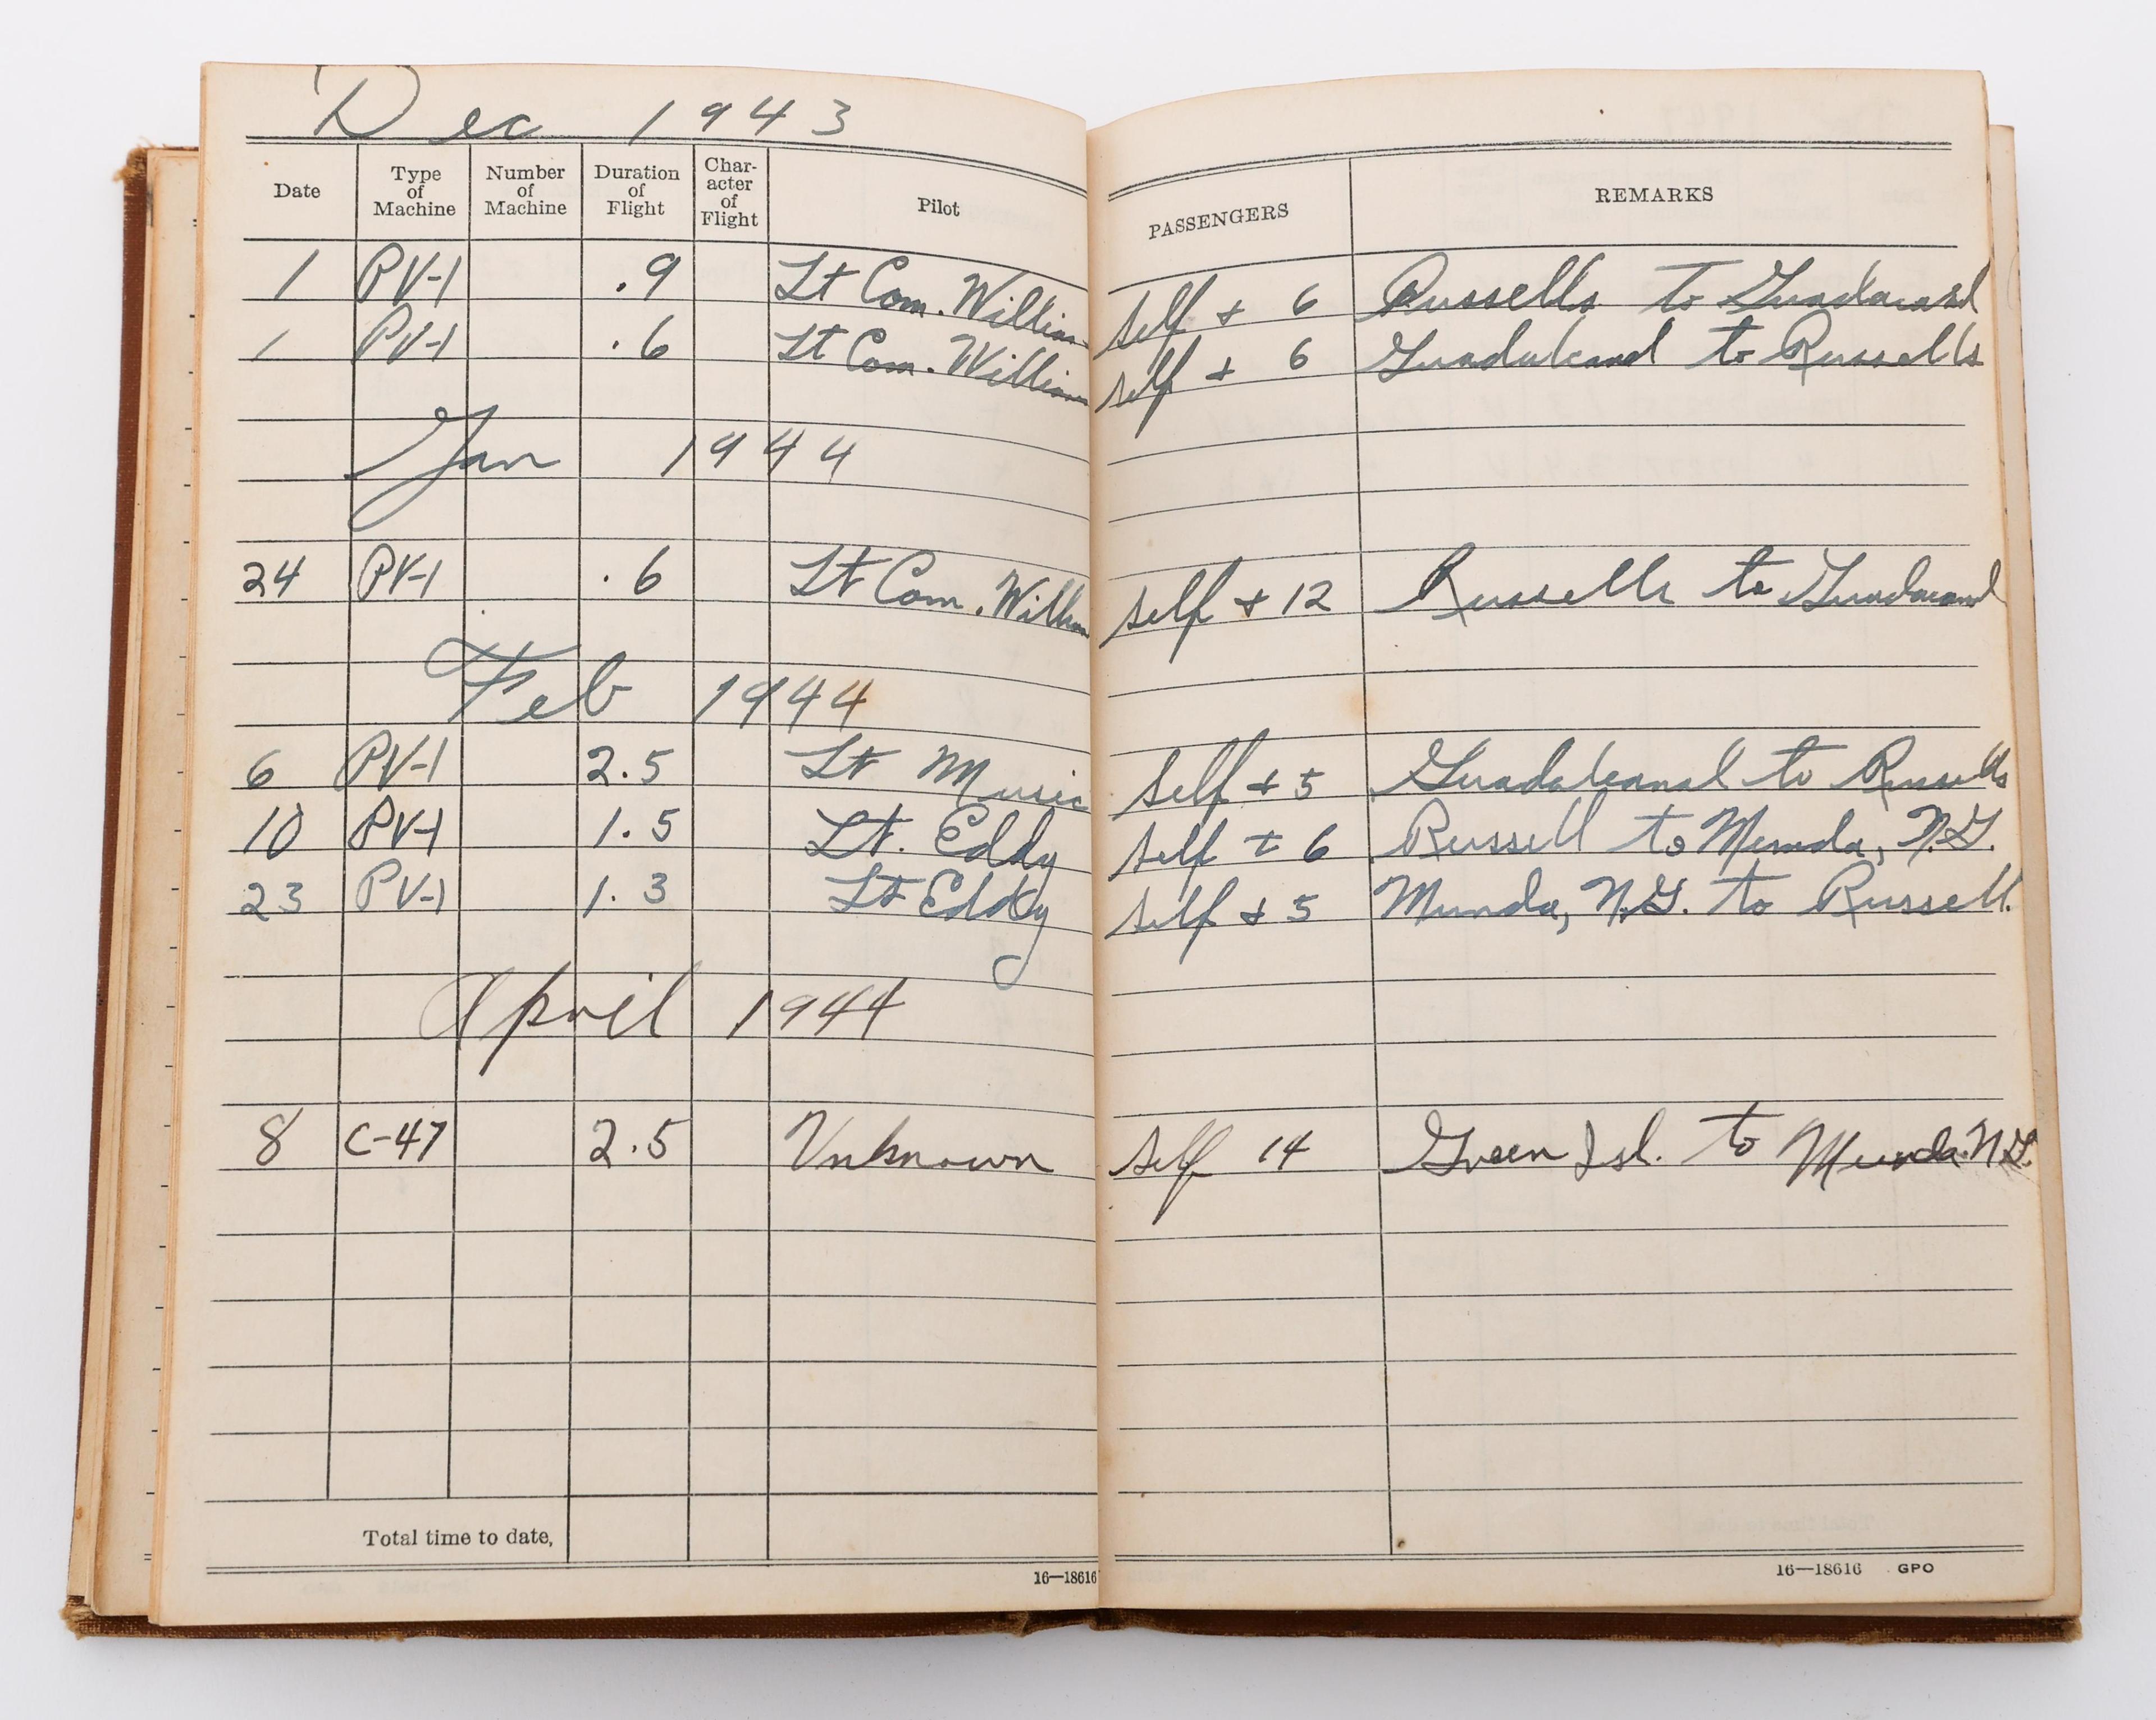 Dec 1943
Date Type of Machine Number of Machine Duration of Flight Char-acter of Flight Pilot PASSENGERS REMARKS
1 PV-1 .9 Lt Com. William self + 6 Russells to Guadacanal
1 PV-1 .6 Lt Com. William self + 6 Guadalcanal to Russells
Jan 1944
24 PV-1 .6 Lt Com. William self + 12 Russells to Guadacanal
Feb 1944
6 PV-1 2.5 Lt Music self + 5 Guadalcanal to Russells
10 PV-1 1.5 Lt. Eddy self + 6 Russell to Munda, N.G.
23 PV-1 1.3 Lt Eddy self + 5 Munda, N.G. to Russell.
April 1944
8 C-47 2.5 Unknown self 14 Green Isl. to Munda N.G.
Total time to date,
16—18616 16—18616 GPO